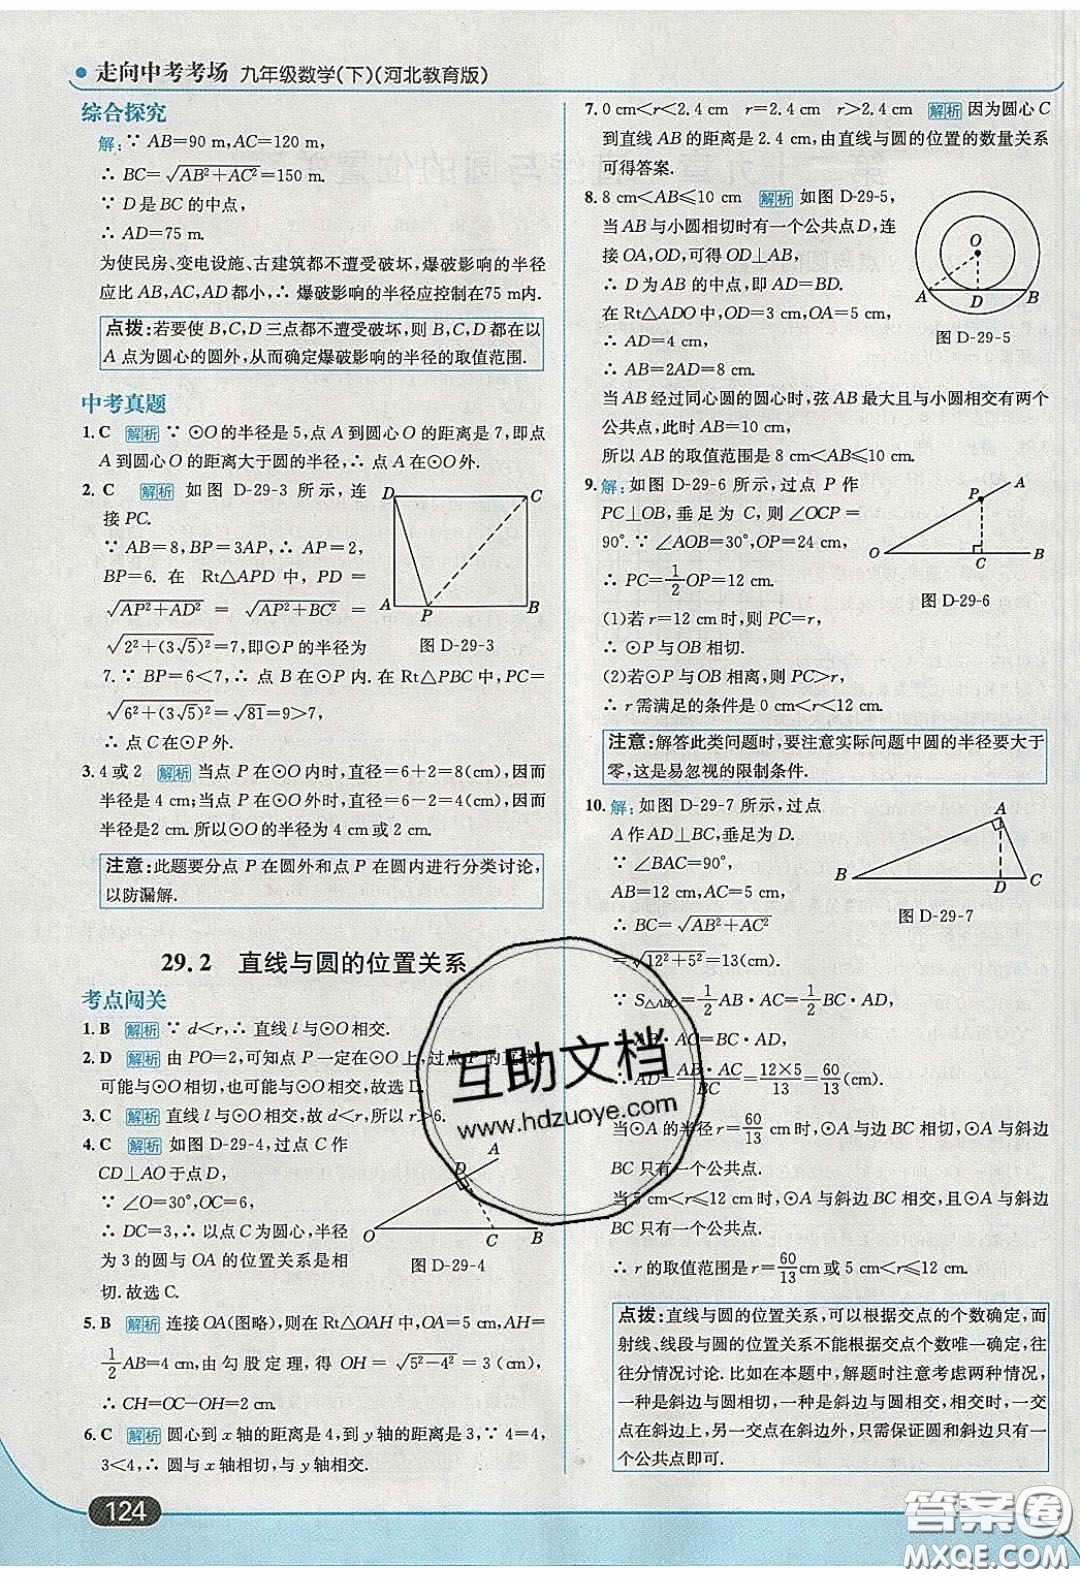 走向中考考场 九年级数学(下)(河北教育版)
综合探究
解:∵ AB=90 m,AC=120 m,
∴ BC=√(AB²+AC²)=150 m.
∵ D是BC的中点,
∴ AD=75 m.
为使民房、变电设施、古建筑都不遭受破坏,爆破影响的半径
应比AB,AC,AD都小,∴ 爆破影响的半径应控制在75 m内.
点拨:若要使B,C,D三点都不遭受破坏,则B,C,D都在以
A点为圆心的圆外,从而确定爆破影响的半径的取值范围.
中考真题
1. C 解析 ∵ ⊙O的半径是5,点A到圆心O的距离是7,即点
A到圆心O的距离大于圆的半径,∴ 点A在⊙O外.
2. C 解析 如图D-29-3所示,连
接PC.
∵ AB=8,BP=3AP,∴ AP=2,
BP=6. 在 Rt△APD 中, PD =
√(AP²+AD²) = √(AP²+BC²) =
√(2²+(3√5)²)=7,即⊙P的半径为
D C A P B
图D-29-3
7. ∵ BP=6<7,∴ 点B在⊙P内. 在Rt△PBC中,PC=
√(6²+(3√5)²)=√81=9>7,
∴ 点C在⊙P外.
3. 4或2 解析 当点P在⊙O内时,直径=6+2=8(cm),因而
半径是4 cm;当点P在⊙O外时,直径=6-2=4(cm),因而
半径是2 cm. 所以⊙O的半径为4 cm或2 cm.
注意:此题要分点P在圆外和点P在圆内进行分类讨论,
以防漏解.
29.2 直线与圆的位置关系
考点闯关
1. B 解析 ∵ d<r,∴ 直线l与⊙O相交.
2. D 解析 由PO=2,可知点P一定在⊙O上,过点P的直线l
可能与⊙O相切,也可能与⊙O相交,故选D.
3. C 解析 直线l与⊙O相交,故d<r,所以r>6.
4. C 解析 如图D-29-4,过点C作
CD⊥AO于点D,
∵ ∠O=30°,OC=6,
∴ DC=3,∴ 以点C为圆心,半径
为3的圆与OA的位置关系是相
切.故选C.
A D O C B
图D-29-4
5. B 解析 连接OA(图略),则在Rt△OAH中,OA=5,AH=
1/2AB=4(cm),由勾股定理,得 OH=√(5²-4²)=3(cm),
∴ CH=OC-OH=2 cm.
6. C 解析 圆心到x轴的距离是4,到y轴的距离是3,∵ 4=4,
3<4,∴ 圆与x轴相切,与y轴相交.
7. 0 cm<r<2.4 cm r=2.4 cm r>2.4 cm 解析 因为圆心C
到直线AB的距离是2.4 cm,由直线与圆的位置的数量关系
可得答案.
8. 8 cm<AB≤10 cm 解析 如图D-29-5,
当AB与小圆相切时有一个公共点D,连
接OA,OD,可得OD⊥AB,
∴ D为AB的中点,即AD=BD.
在Rt△ADO中,OD=3 cm,OA=5 cm,
∴ AD=4 cm,
∴ AB=2AD=8 cm.
O A D B
图D-29-5
当AB经过同心圆的圆心时,弦AB最大且与小圆相交有两个
公共点,此时AB=10 cm,
所以AB的取值范围是8 cm<AB≤10 cm.
9. 解:如图D-29-6所示,过点P作
PC⊥OB,垂足为C,则∠OCP=
90°. ∵ ∠AOB=30°,OP=24 cm,
∴ PC=1/2OP=12 cm.
(1)若r=12 cm时,则PC=r,
∴ ⊙P与OB相切.
(2)若⊙P与OB相离,则PC>r,
∴ r需满足的条件是0 cm<r<12 cm.
P A O C B
图D-29-6
注意:解答此类问题时,要注意实际问题中圆的半径要大于
零,这是易忽视的限制条件.
10. 解:如图D-29-7所示,过点
A作AD⊥BC,垂足为D.
∵ ∠BAC=90°,
AB=12 cm,AC=5 cm,
∴ BC=√(AB²+AC²)
=√(12²+5²)=13(cm).
A B D C
图D-29-7
∵ S△ABC=1/2AB·AC=1/2BC·AD,
∴ AB·AC=BC·AD,
∴ AD=AB·AC/BC=12×5/13=60/13(cm).
当⊙A的半径r=60/13 cm时,⊙A与边BC相切,⊙A与斜边
BC只有一个公共点.
当5 cm<r≤12 cm时,⊙A与斜边BC相交,且⊙A与斜边
BC只有一个公共点.
∴ r的取值范围是r=60/13cm或5 cm<r≤12 cm.
点拨:直线与圆的位置关系,可以根据交点的个数确定,而
射线、线段与圆的位置关系不能根据交点个数唯一确定,往
往分情况讨论. 比如在本题中,解题时注意考虑两种情况,
一种是斜边与圆相切,一种是斜边与圆相交,相交时,一交
点在斜边上,另一交点在斜边外,只需保证圆和斜边只有一
个公共点即可.
互助文档
www.hdzuoye.com
124
答案圈
MXQE.COM